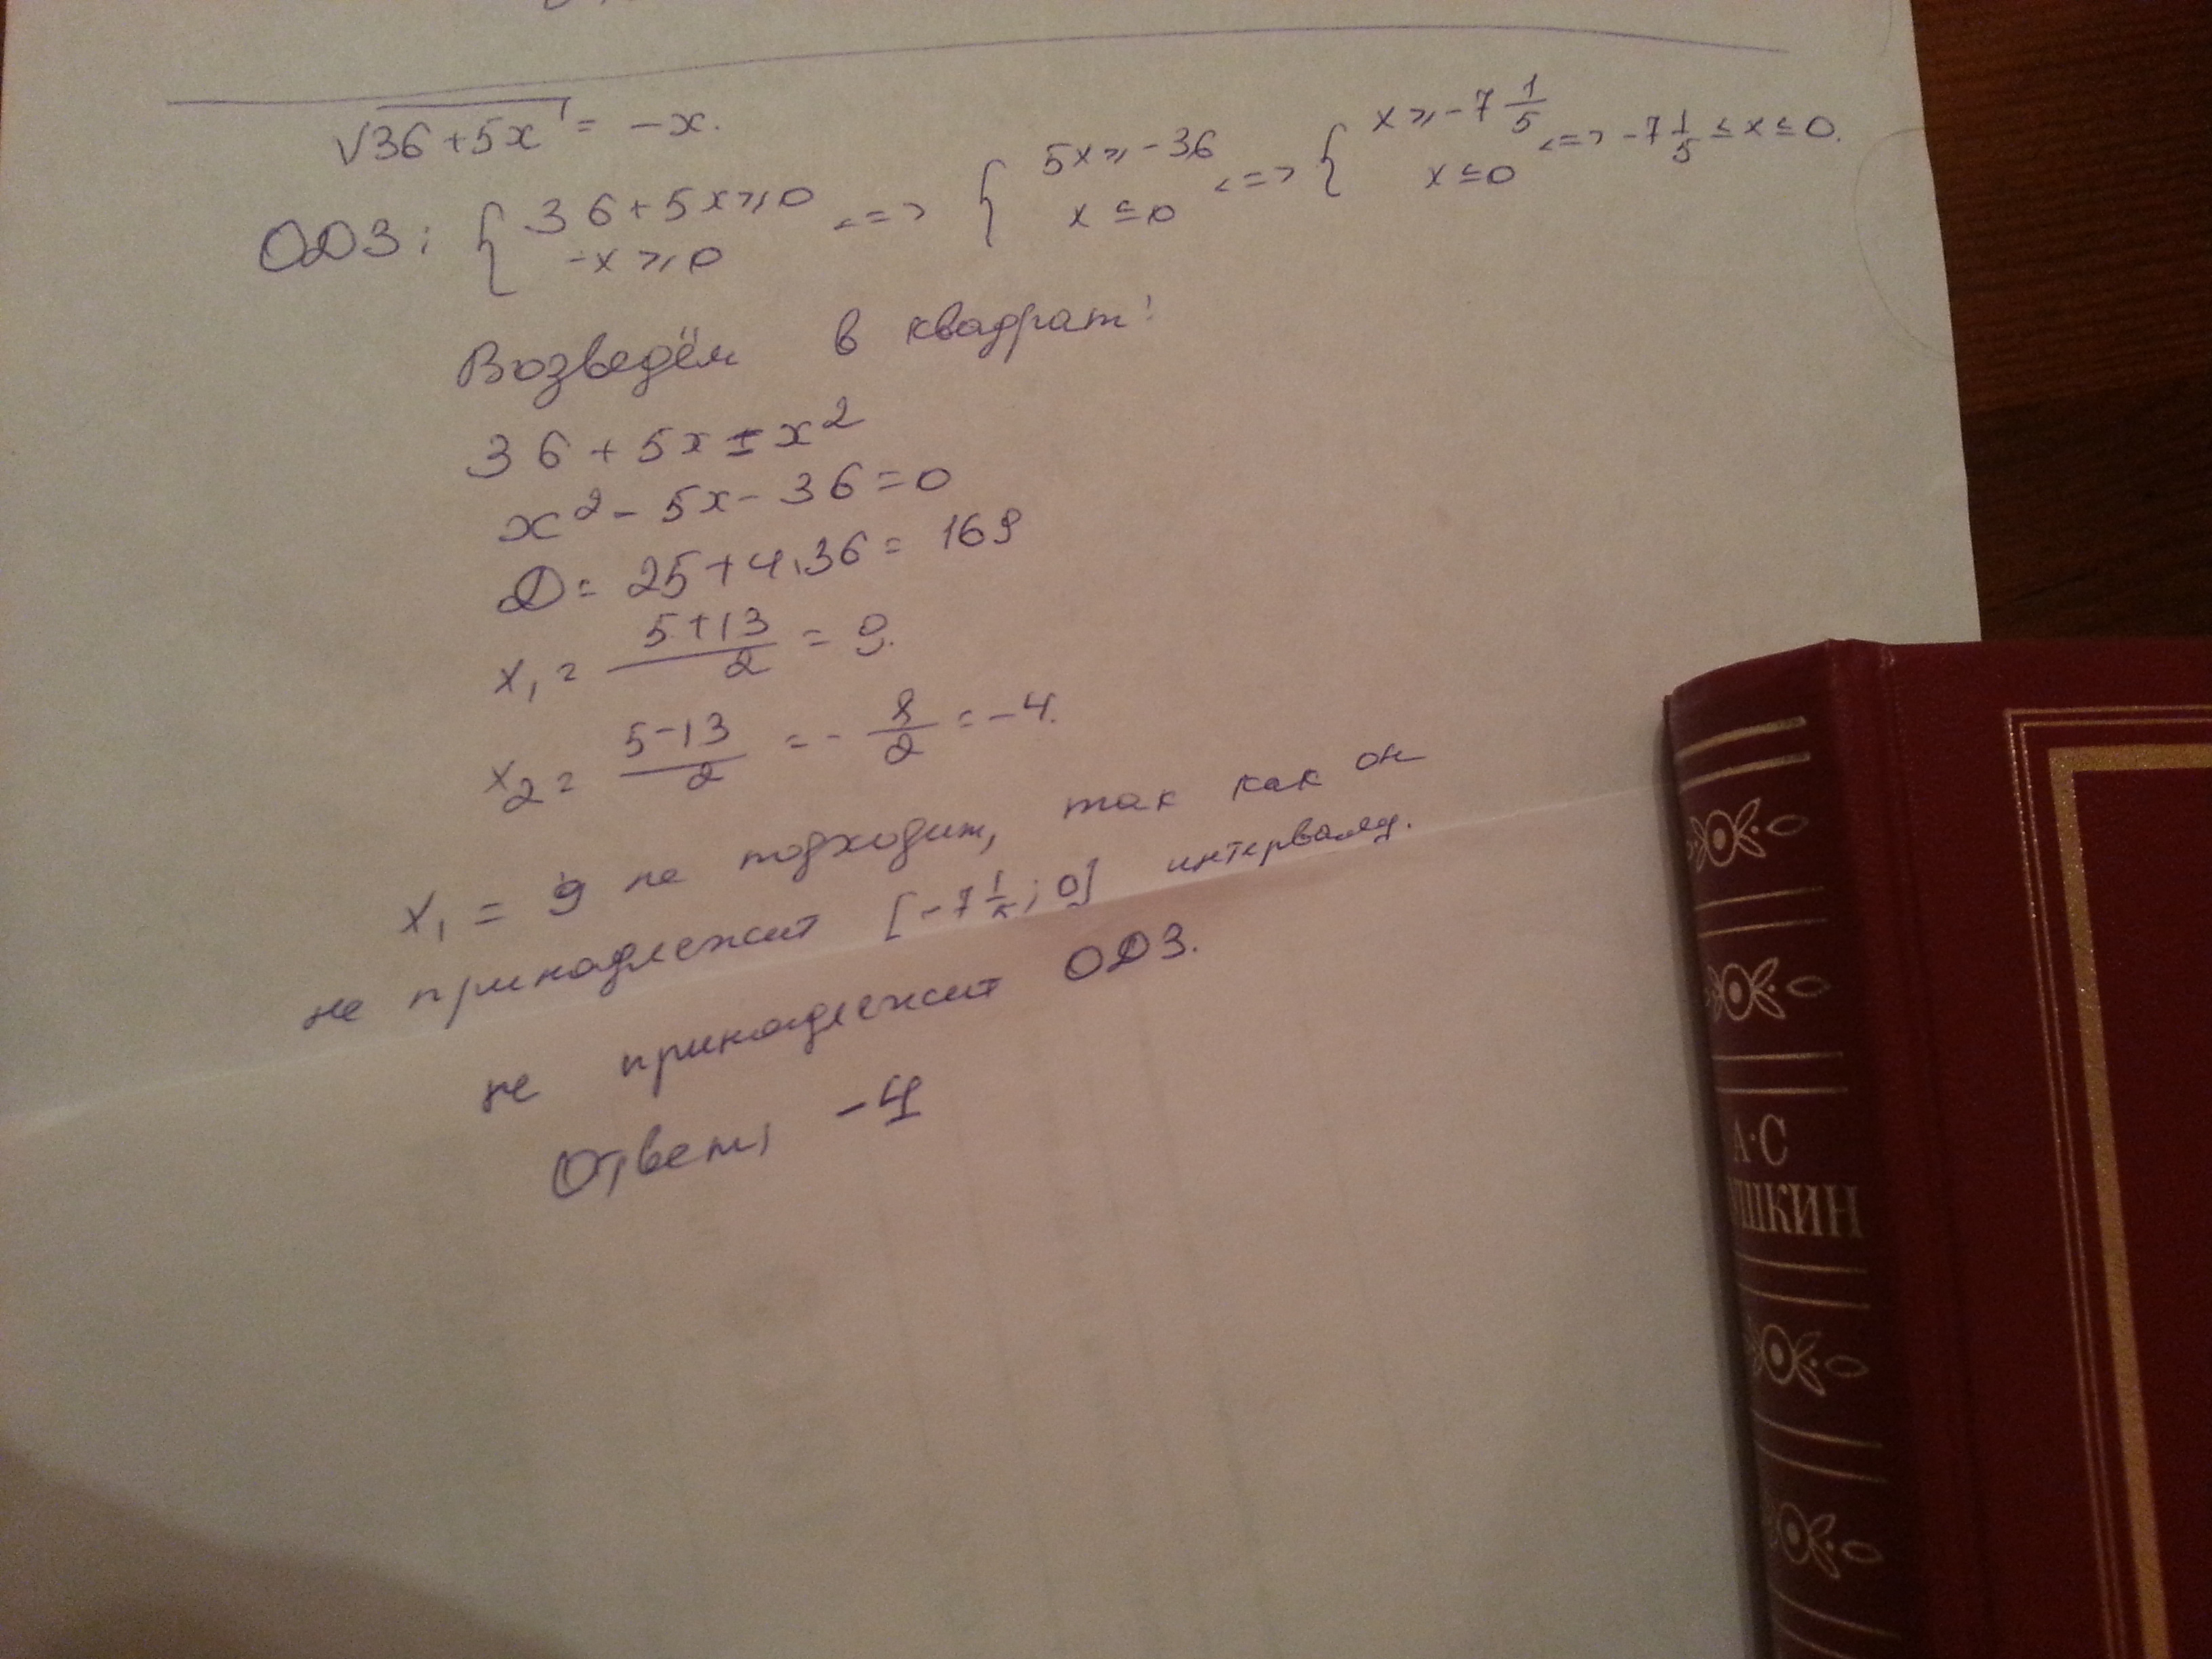 √36+5x = -x.
ОДЗ: { 36+5x ≥ 0 <=> { 5x ≥ -36 <=> { x ≥ -7 1/5 <=> -7 1/5 ≤ x ≤ 0.
-x ≥ 0 x ≤ 0 x ≤ 0
Возведём в квадрат:
36 + 5x = x²
x² - 5x - 36 = 0
D = 25 + 4·36 = 169
x₁ = (5+13)/2 = 9.
x₂ = (5-13)/2 = - 8/2 = -4.
x₁ = 9 не подходит, так как он
не принадлежит [-7 1/5; 0] интервалу.
не принадлежит ОДЗ.
Ответ: -4
А·С
ШКИН